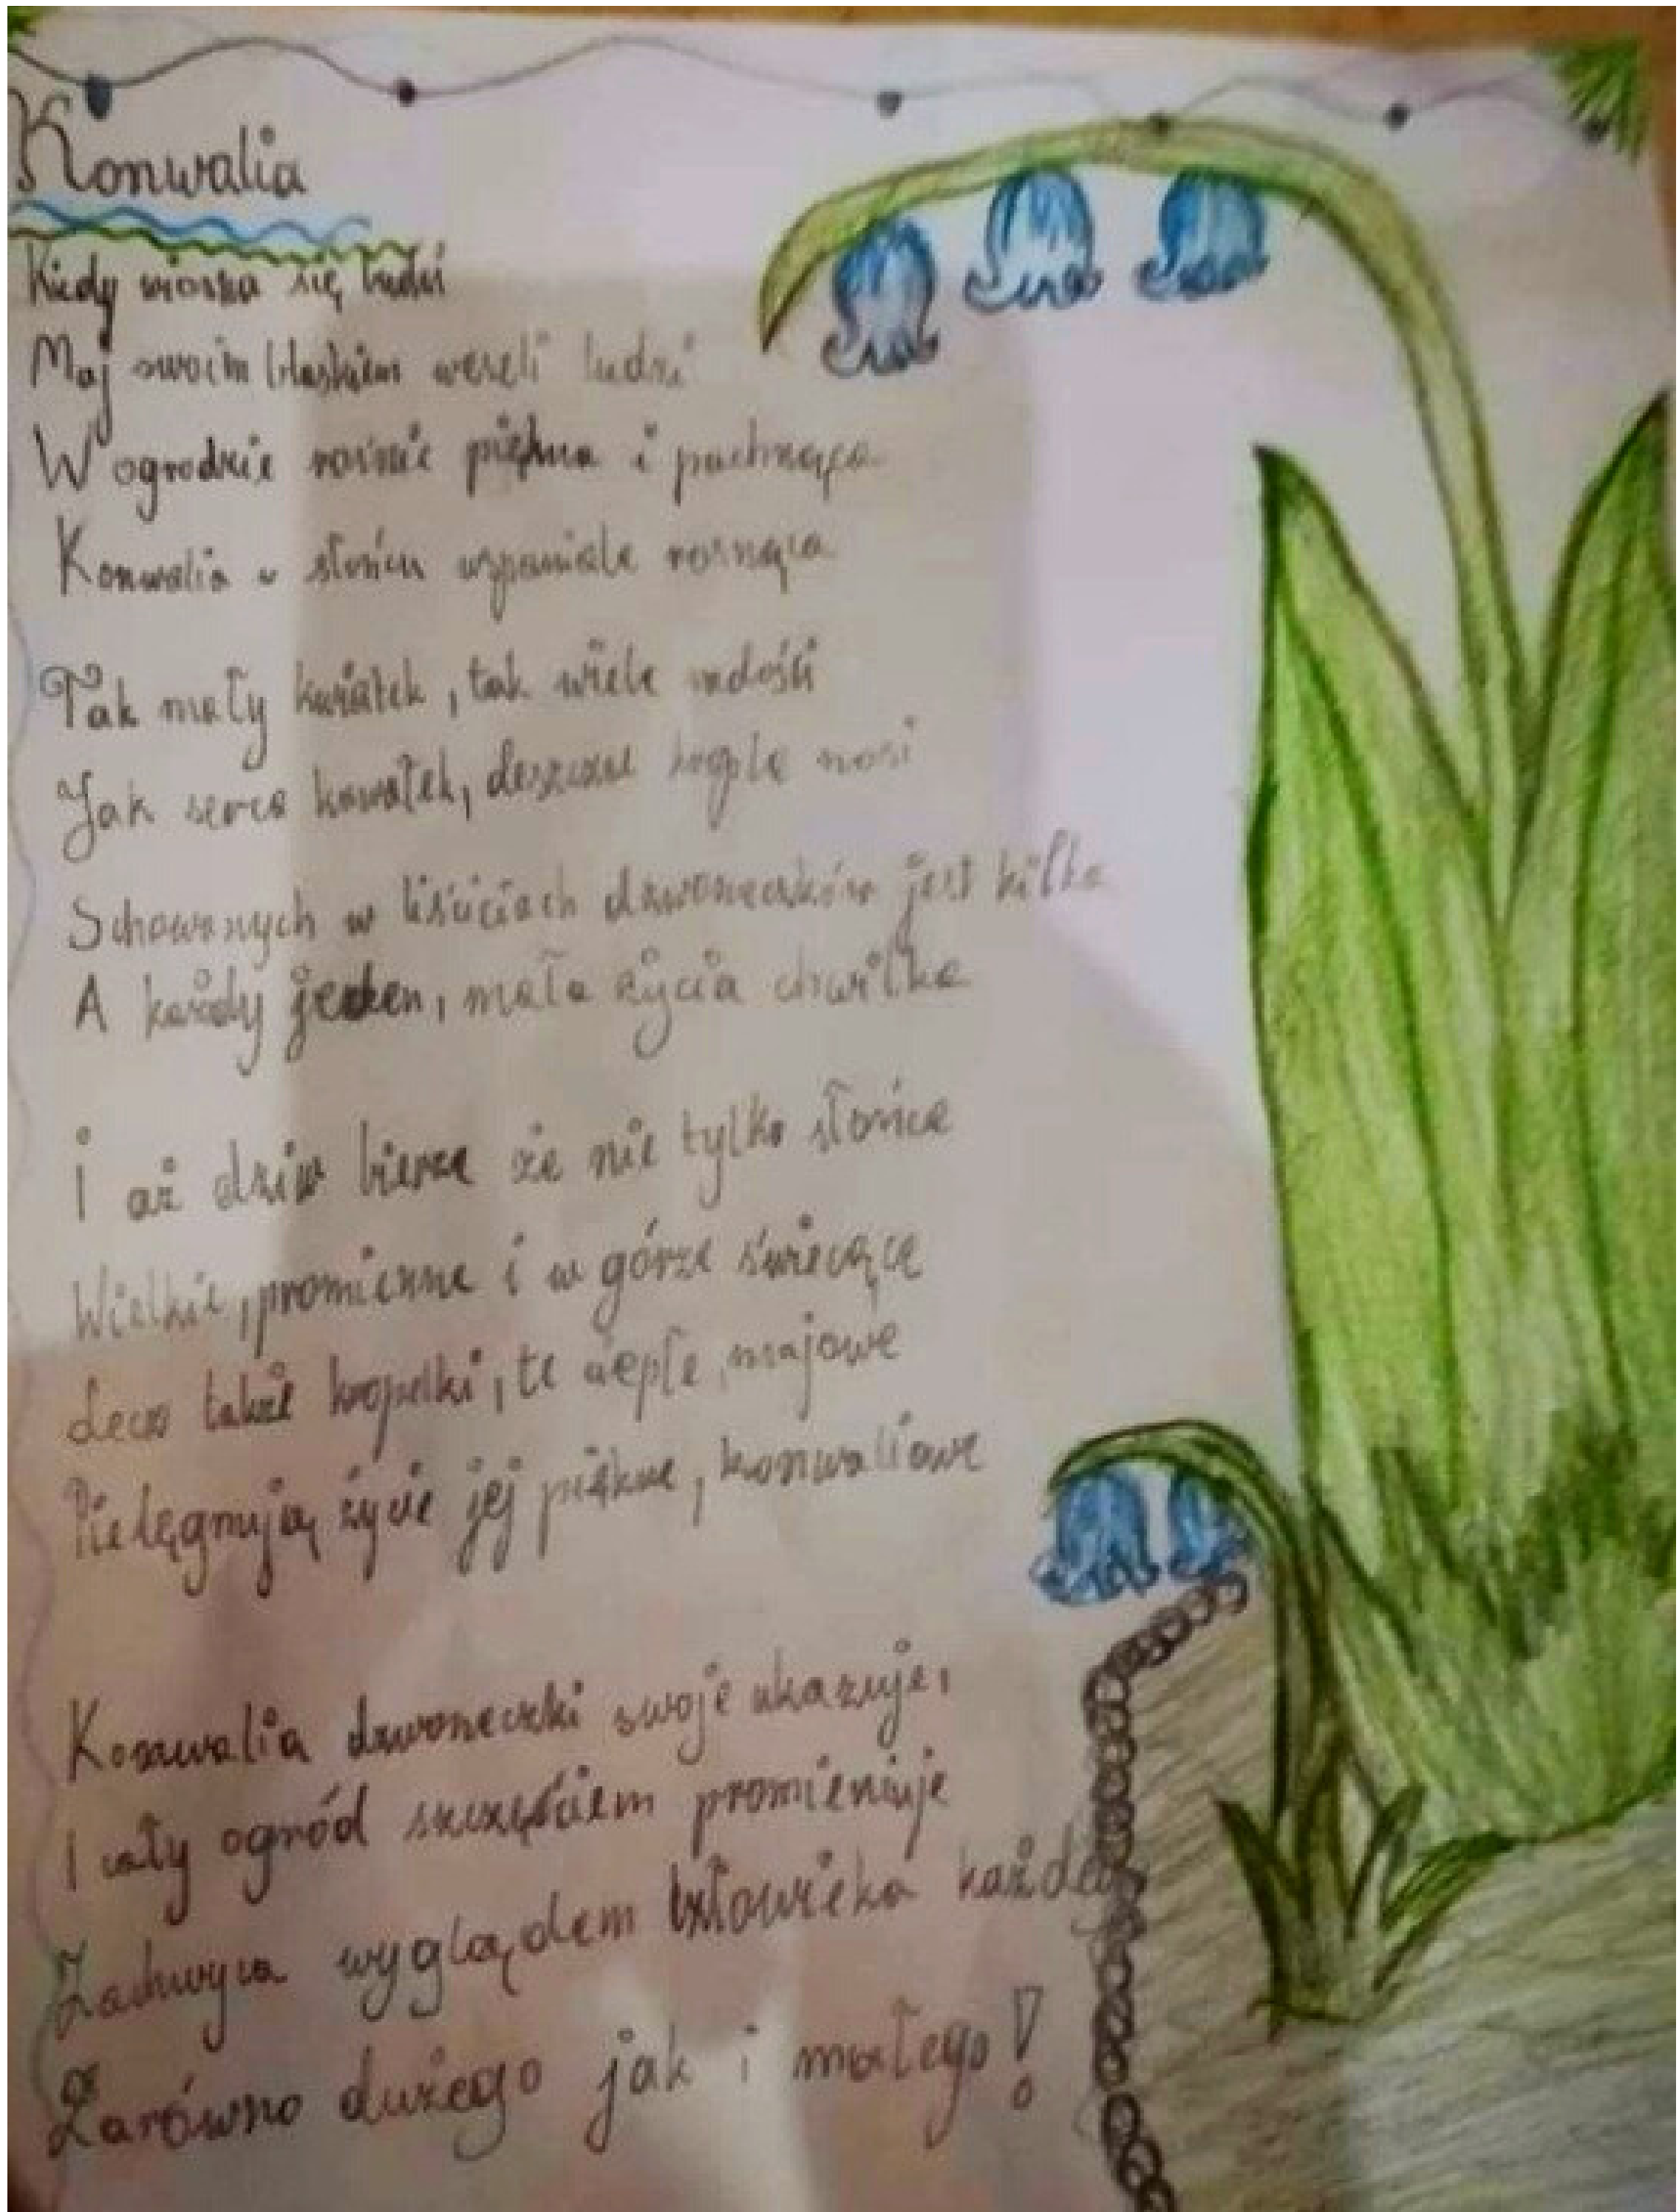 Konwalia
Kiedy wiosna się budzi
Maj swoim blaskiem weseli ludzi
W ogrodzie rośnie piękna i pachnąca
Konwalia w słońcu wspaniale rosnąca
Tak mały kwiatek, tak wiele radości
Jak serca kawałek, deszczu kroplę nosi
Schowanych w liściach dzwoneczków jest kilka
A każdy jeden, mała życia chwilka
I aż dziw bierze że nie tylko słońce
Wielkie, promienne i w górze świecące
Lecz także kropelki, te ciepłe, majowe
Pielęgnują życie jej piękne, konwaliowe
Konwalia dzwoneczki swoje ukazuje,
I cały ogród szczęściem promieniuje
Zachwyca wyglądem człowieka każdego
Zarówno dużego jak i małego!